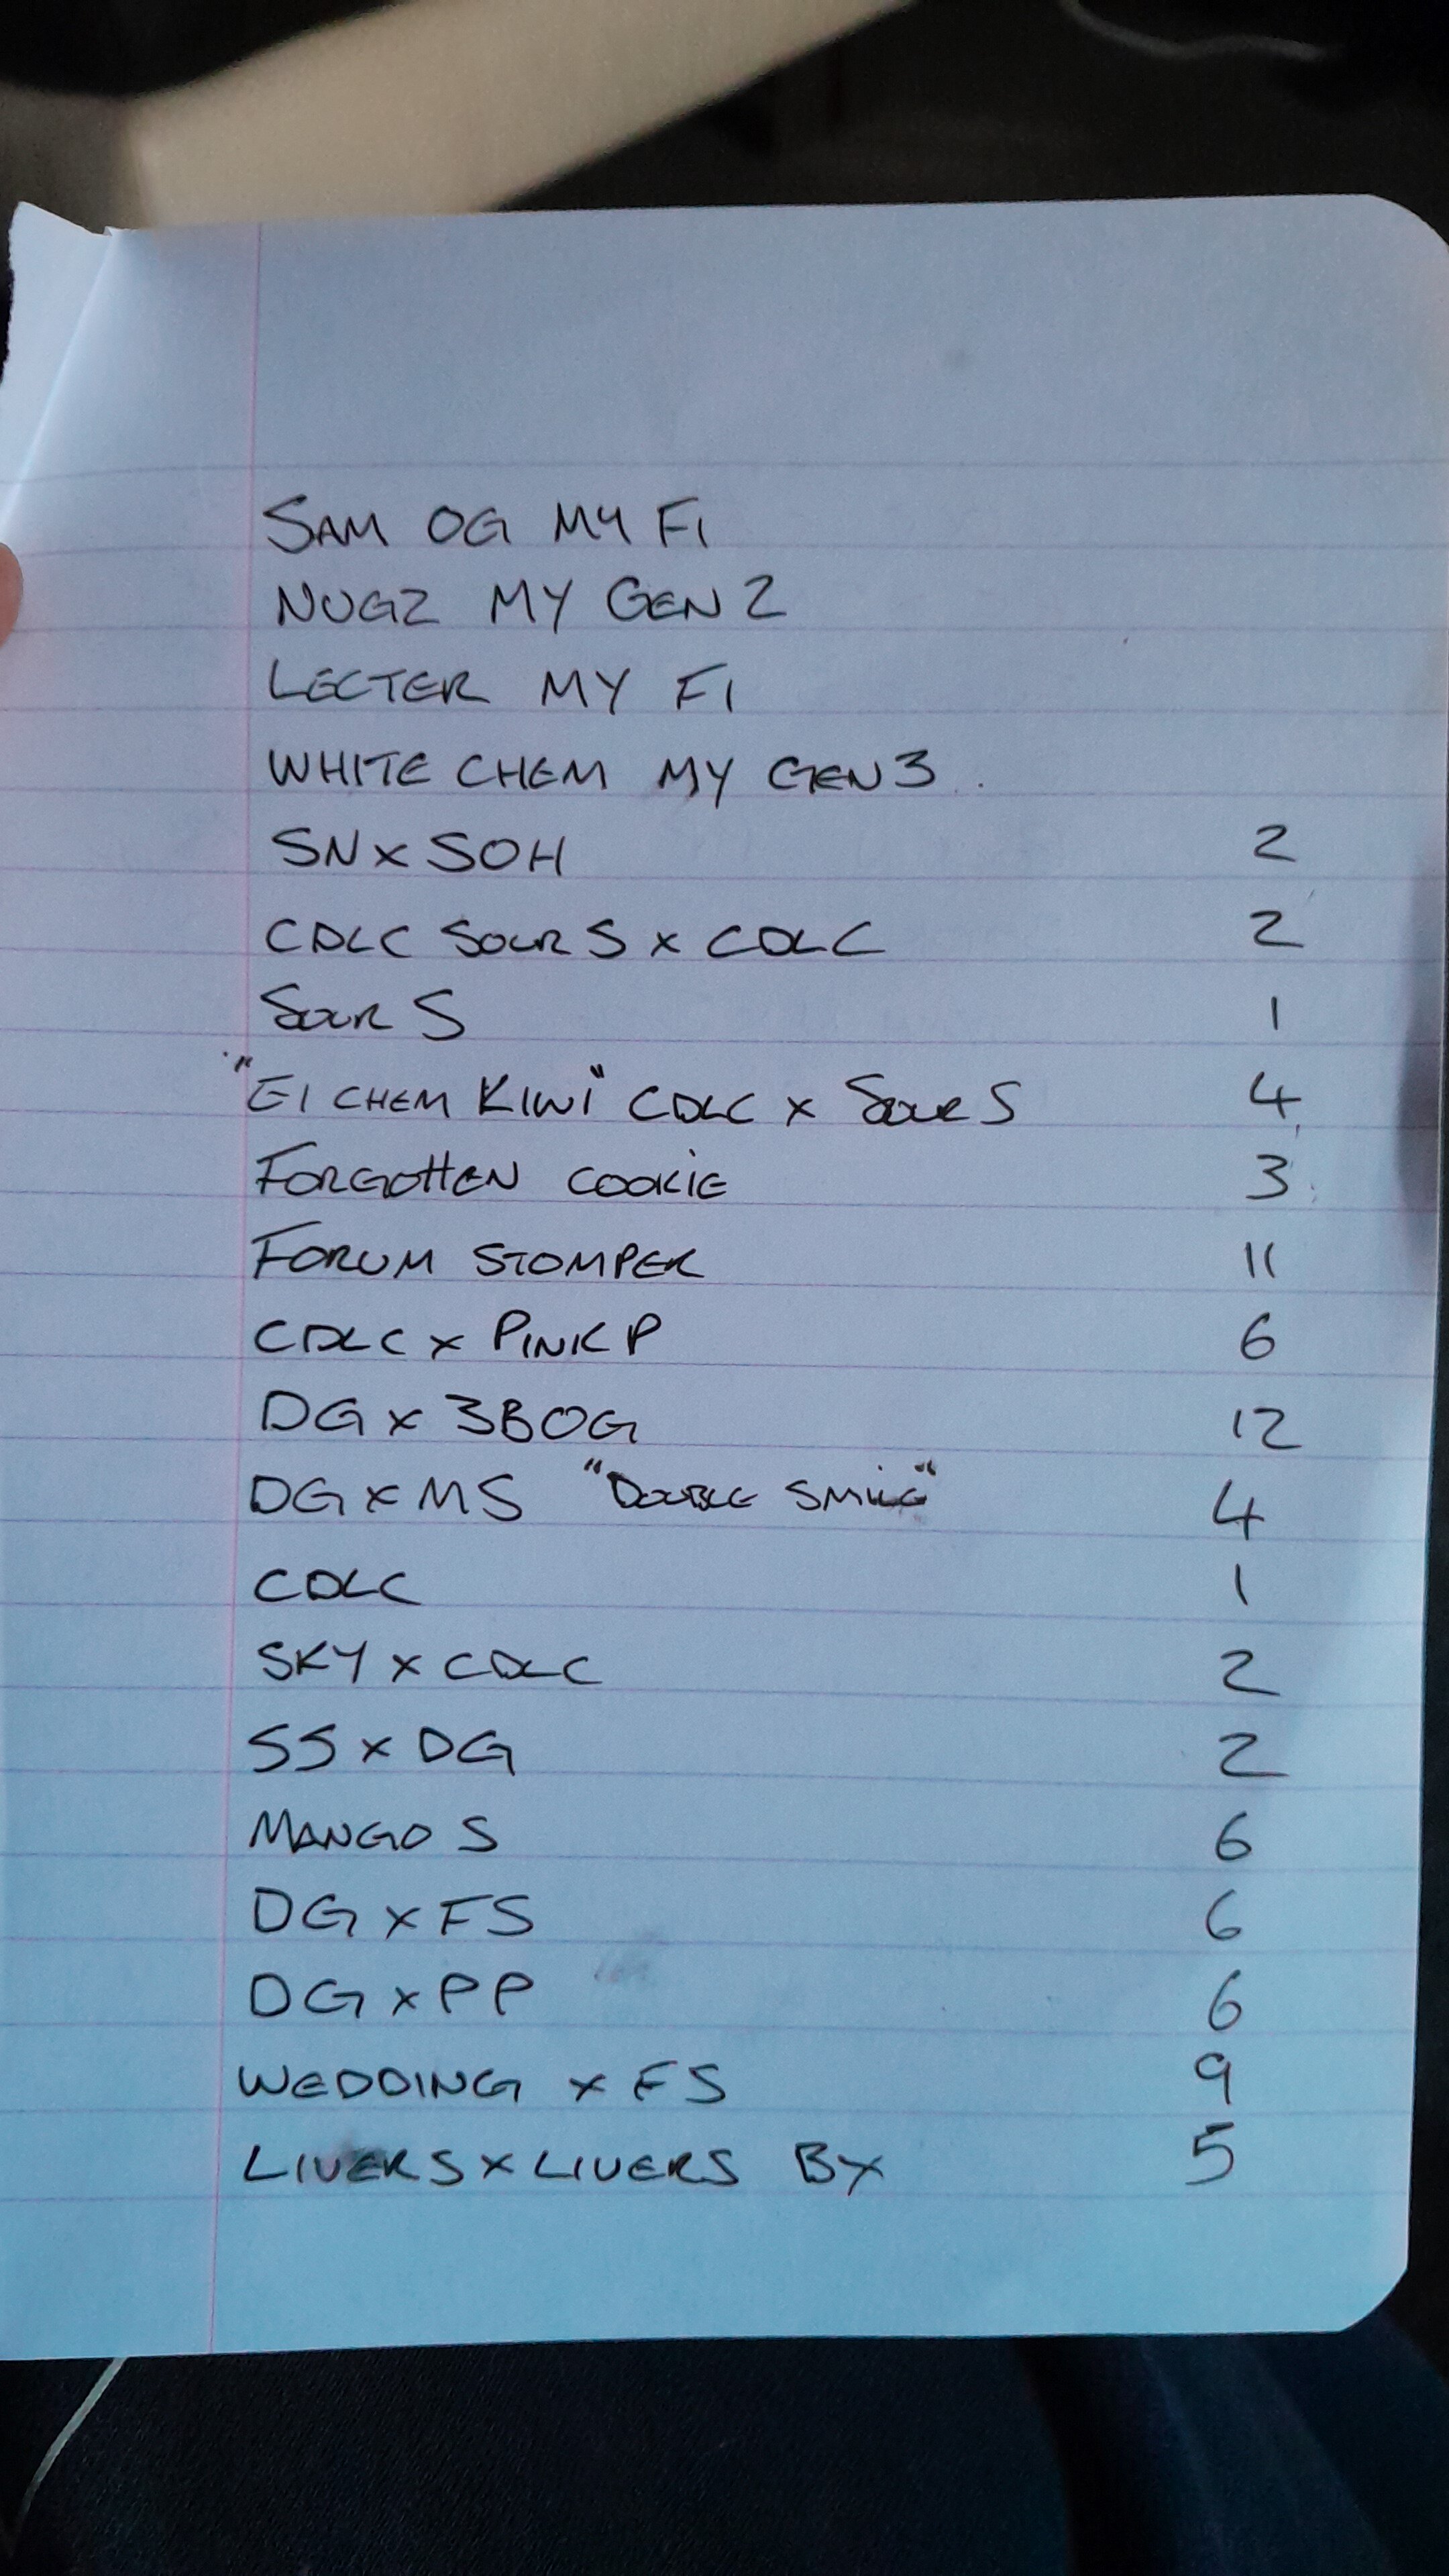 SAM OG MY F1
NUGZ MY GEN 2
LECTER MY F1
WHITE CHEM MY GEN 3
SN x SOH 2
CDLC SOUR S x CDLC 2
SOUR S 1
"E1 CHEM KIWI" CDLC x SOUR S 4
FORGOTTEN COOKIE 3
FORUM STOMPER 11
CDLC x PINK P 6
DG x 3BOG 12
DG x MS "DOUBLE SMILE" 4
CDLC 1
SKY x CDLC 2
SS x DG 2
MANGO S 6
DG x FS 6
DG x PP 6
WEDDING x FS 9
LIVERS x LIVERS BX 5